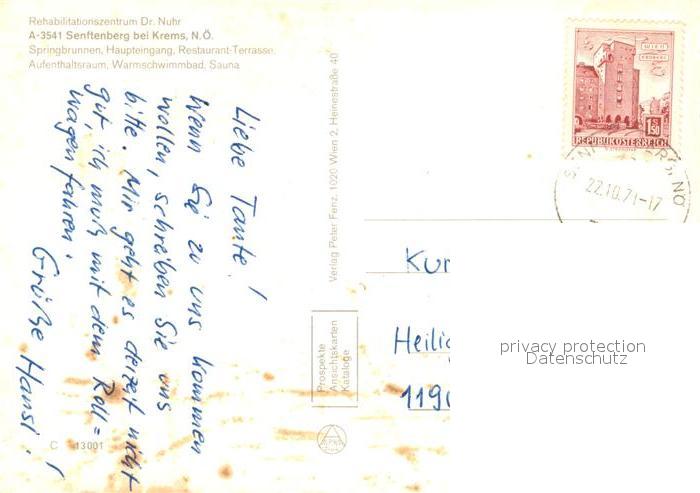 Rehabilitationszentrum Dr. Nuhr
A-3541 Senftenberg bei Krems, N.Ö.
Springbrunnen, Haupteingang, Restaurant-Terrasse,
Aufenthaltsraum, Warmschwimmbad, Sauna
Liebe Tante!
Wenn Sie zu uns kommen
wollen, schreiben Sie uns
bitte. Mir geht es derzeit nicht
gut, ich muß mit dem Roll=
wagen fahren.
Grüße Hansi!
C 13001
Verlag Peter Fenz, 1020 Wien 2, Heinestraße 40
Prospekte
Ansichtskarten
Kataloge
WIEN
ERDBERG
1.50
REPUBLIK ÖSTERREICH
22.10.71-17
NÖ
Kur
Heilig
1190
privacy protection
Datenschutz